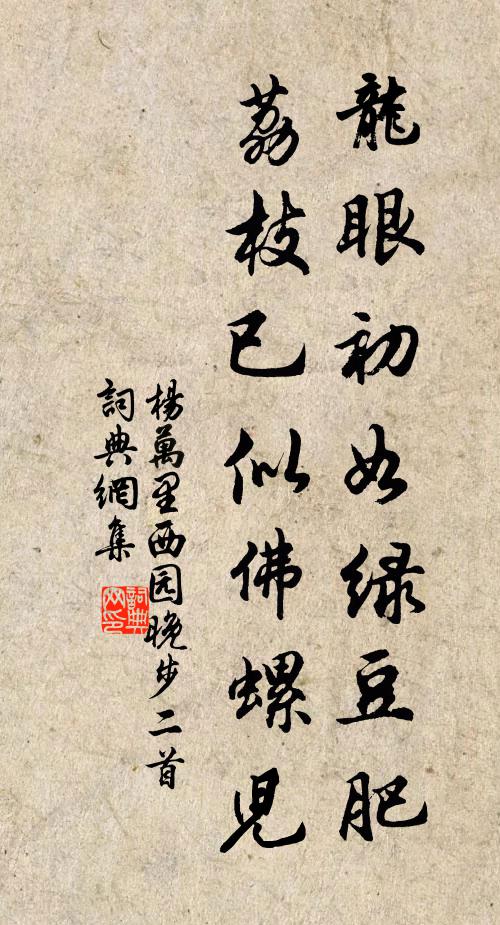 龍眼初如绿豆肥
荔枝已似佛螺兒
楊萬里西园晚步二首
詞典網集
詞典
网印